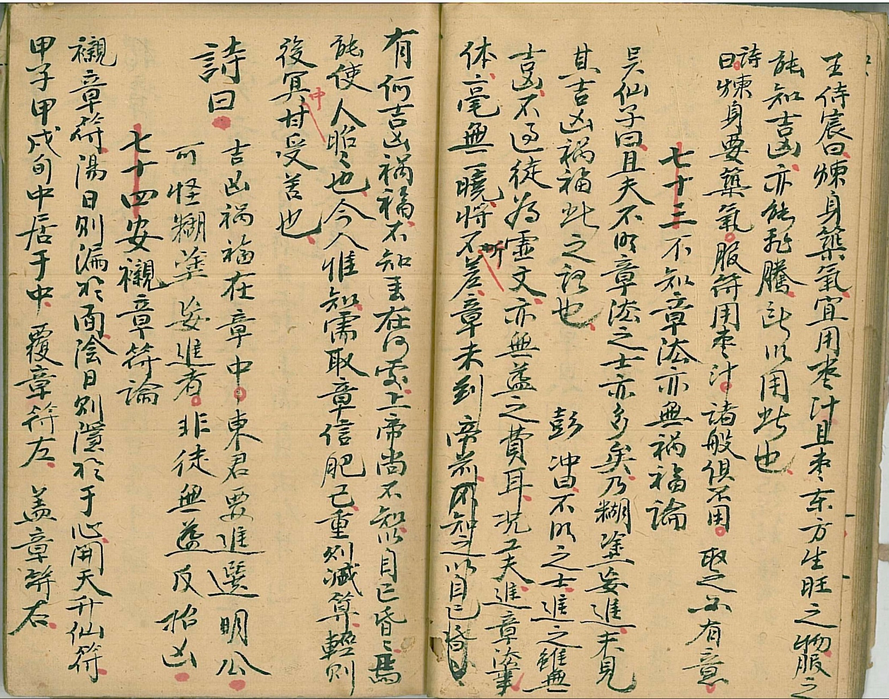 王侍宸曰煉身藥氣宜用枣汁且枣东方生旺之物服之
能知吉凶亦能飛騰所以用此也
詩曰煉身要藥氣服符用枣汁諸般俱不用取之必有意
七十三不知章法亦無禍福論
吴仙子曰且夫不明章法之士亦多矣乃糊塗妄進未見
其吉凶禍福此之謂也 彭冲曰不明之士進之雖無
吉凶不过徒為虛文亦無益之費耳况工夫進章法事
体一毫無一曉將何差章未到帝前不知之以自已昏
有何吉凶禍福不知手在何處上帝尚不知以自已昏昏焉
能使人昭昭也今人惟知需取章信肥已重則减算輕則
後冥中甘受苦也
詩曰 吉凶禍福在章中東君要進選明公
可怪糊塗妄進者非徒無益反招凶
七十四安襯章符論
襯章符陽日則漏於面陰日則隱於于心開天升仙符
甲子甲戌旬中居于中覆章符左盖章符右